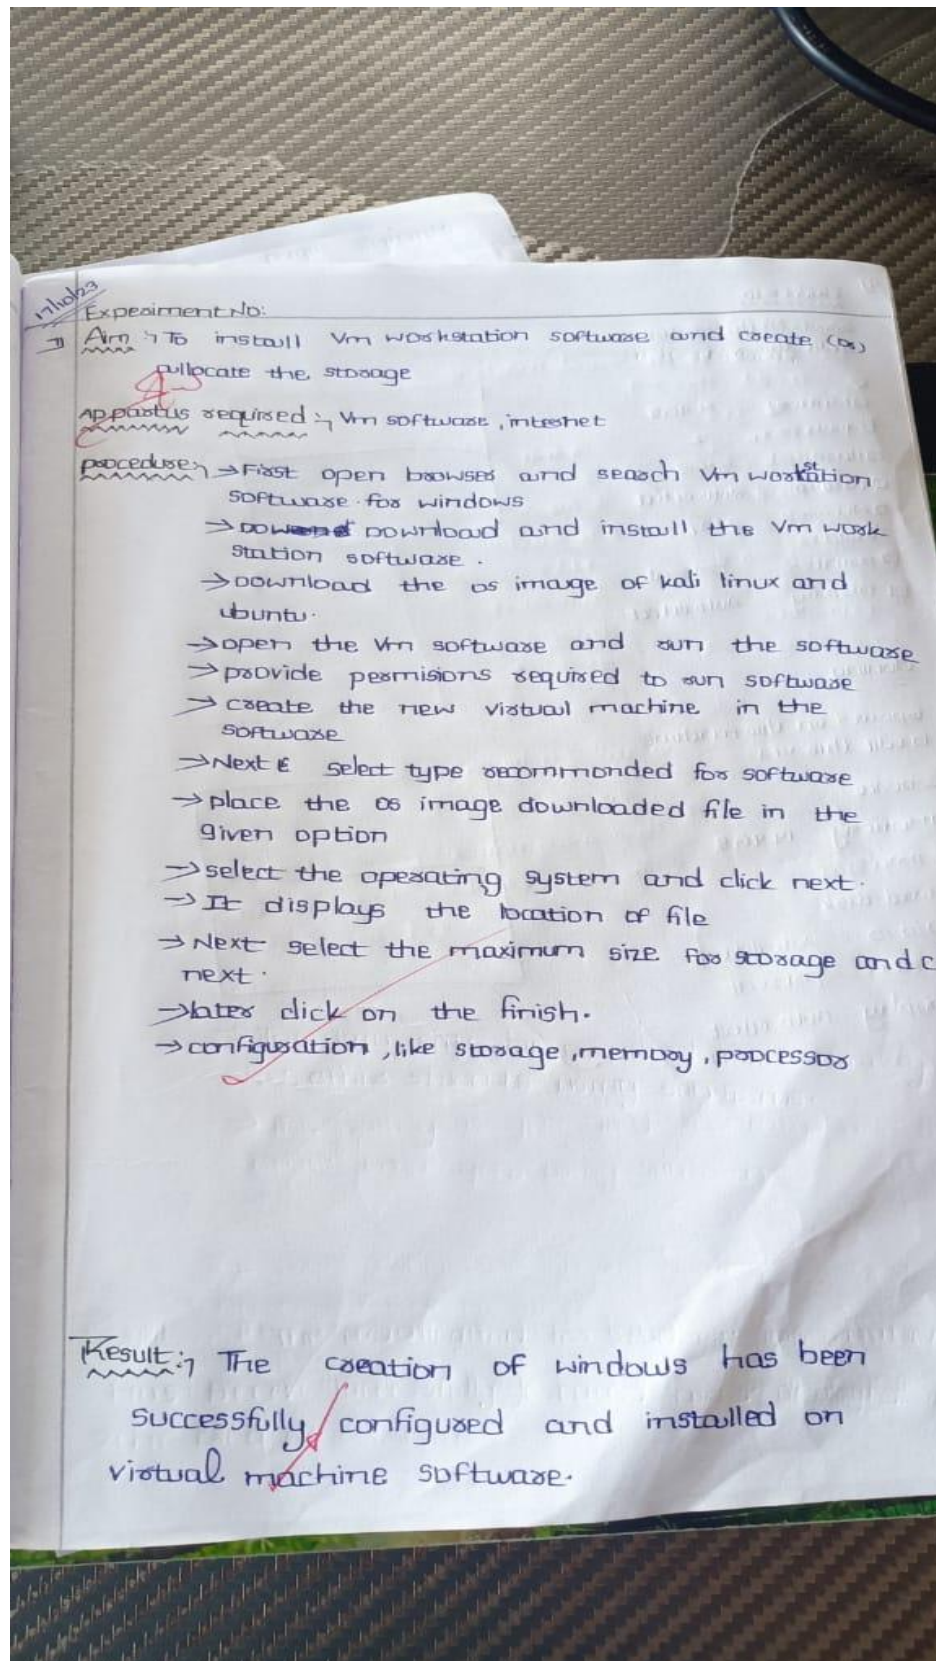 17/10/23
Experiment No:
1) Aim :- To install Vm workstation software and create (or)
allocate the storage
Appartus required :- Vm software, internet
procedure :- → First open browser and search Vm workstation
software for windows
→ Download and install the Vm work
station software.
→ Download the os image of kali linux and
ubuntu.
→ open the Vm software and run the software
→ provide permisions required to run software
→ create the new virtual machine in the
software
→ Next & select type recommonded for software
→ place the os image downloaded file in the
given option
→ select the operating system and click next.
→ It displays the location of file
→ Next select the maximum size for storage and c
next.
→ later click on the finish.
→ configuration, like storage, memory, processor
Result :- The creation of windows has been
successfully configured and installed on
virtual machine software.